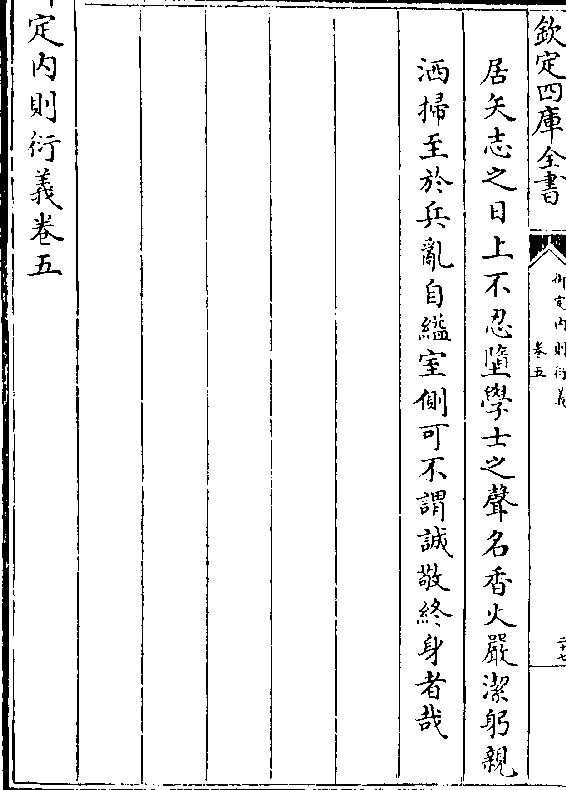 欽定四庫全書
御定内則衍義
卷五
二十七
居矢志之日上不忍墮學士之聲名香火嚴潔躬親
洒掃至於兵亂自縊室側可不謂誠敬終身者哉
定内則衍義卷五